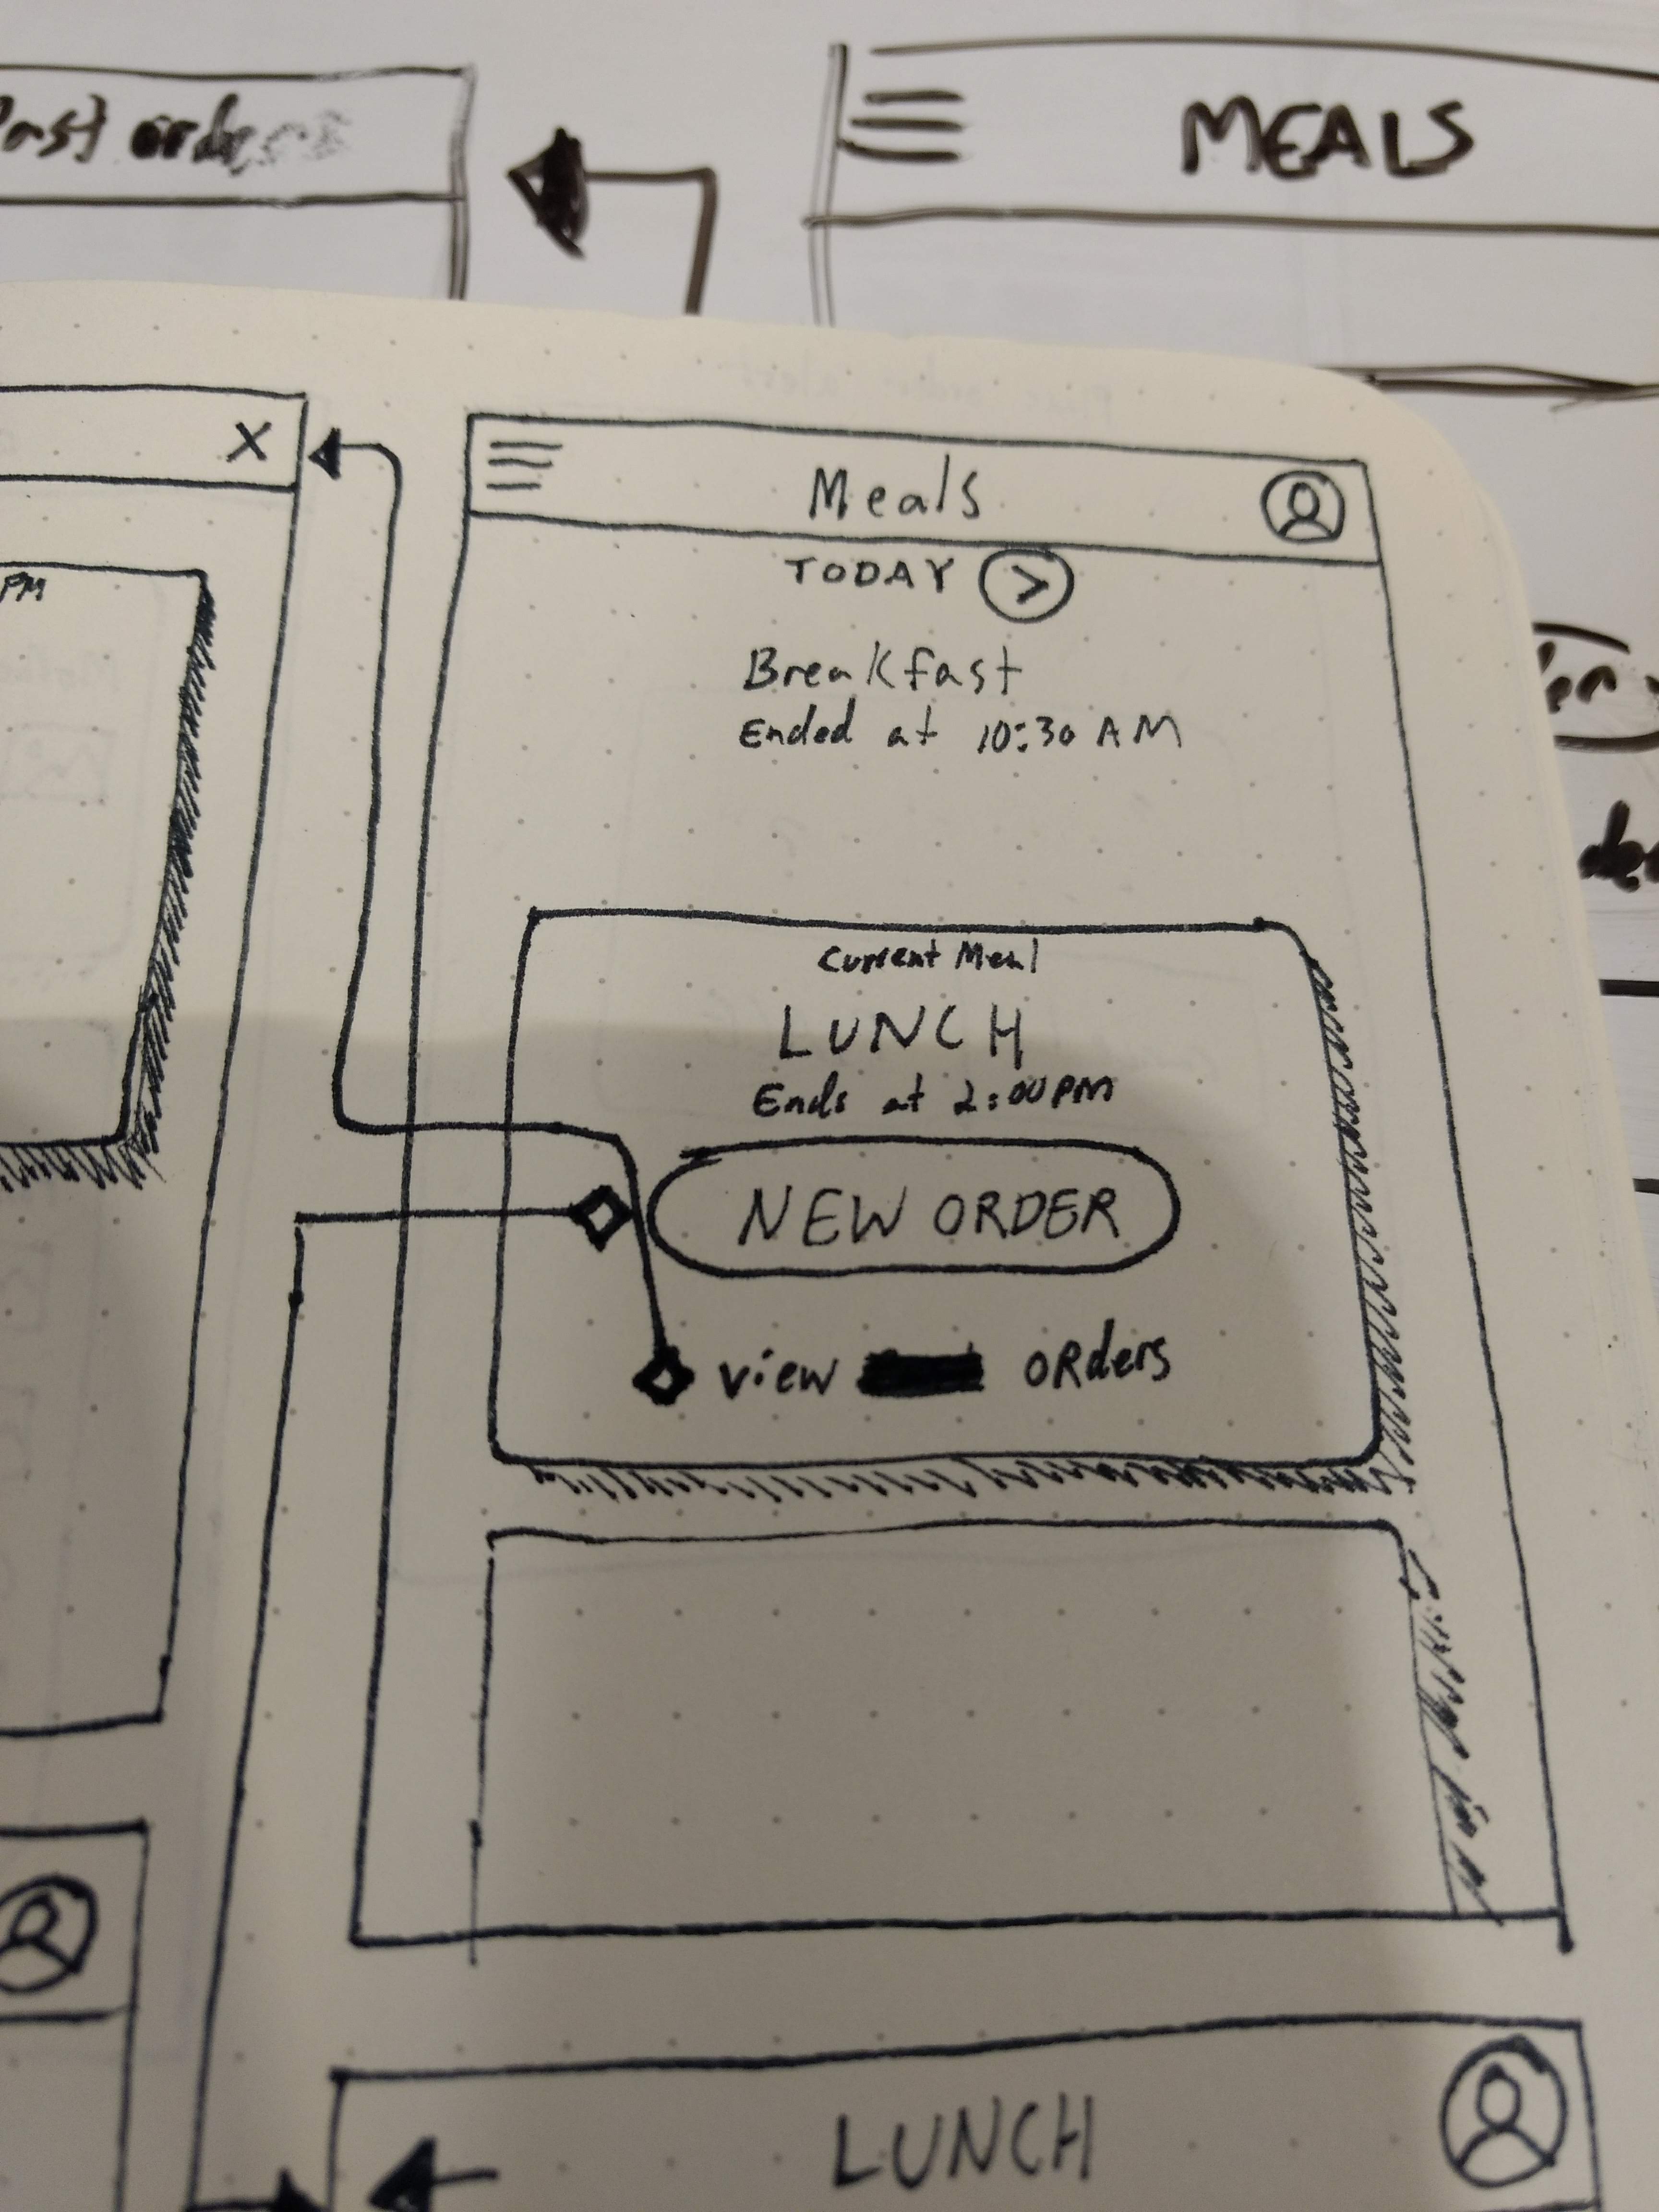 Past orders
MEALS
X
Meals
TODAY >
PM
Breakfast
Ended at 10:30 AM
Current Meal
LUNCH
Ends at 2:00 PM
NEW ORDER
view orders
LUNCH